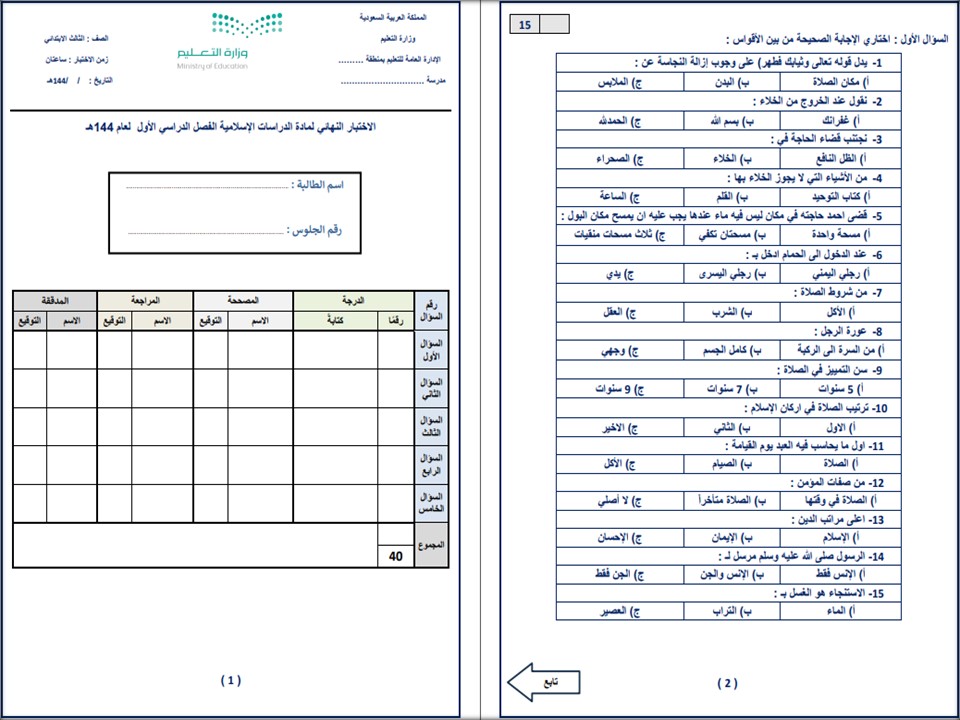 المملكة العربية السعودية
وزارة التعليم
الإدارة العامة للتعليم بمنطقة .........
مدرسة ..............................
وزارة التعليم
Ministry of Education
الصف : الثالث الابتدائي
زمن الاختبار : ساعتان
التاريخ : / /144هـ
الاختبار النهائي لمادة الدراسات الإسلامية الفصل الدراسي الأول لعام 144هـ
اسم الطالبة : ..............................
رقم الجلوس : ..............................
رقم السؤال الدرجة المصححة المراجعة المدققة
رقمًا كتابةً الاسم التوقيع الاسم التوقيع الاسم التوقيع
السؤال الأول
السؤال الثاني
السؤال الثالث
السؤال الرابع
السؤال الخامس
المجموع
40
( 1 )
15
السؤال الأول : اختاري الإجابة الصحيحة من بين الأقواس :
1- يدل قوله تعالى وثيابك فطهر) على وجوب إزالة النجاسة عن :
أ) مكان الصلاة ب) البدن ج) الملابس
2- نقول عند الخروج من الخلاء :
أ) غفرانك ب) بسم الله ج) الحمدلله
3- نجتنب قضاء الحاجة في :
أ) الظل النافع ب) الخلاء ج) الصحراء
4- من الأشياء التي لا يجوز الخلاء بها :
أ) كتاب التوحيد ب) القلم ج) الساعة
5- قضى احمد حاجته في مكان ليس فيه ماء عندها يجب عليه ان يمسح مكان البول :
أ) مسحة واحدة ب) مسحتان تكفي ج) ثلاث مسحات منقيات
6- عند الدخول الى الحمام ادخل بـ :
أ) رجلي اليمني ب) رجلي اليسرى ج) يدي
7- من شروط الصلاة :
أ) الأكل ب) الشرب ج) العقل
8- عورة الرجل :
أ) من السرة الى الركبة ب) كامل الجسم ج) وجهي
9- سن التمييز في الصلاة :
أ) 5 سنوات ب) 7 سنوات ج) 9 سنوات
10- ترتيب الصلاة في اركان الإسلام :
أ) الاول ب) الثاني ج) الاخير
11- اول ما يحاسب فيه العبد يوم القيامة :
أ) الصلاة ب) الصيام ج) الأكل
12- من صفات المؤمن :
أ) الصلاة في وقتها ب) الصلاة متأخراً ج) لا أصلي
13- اعلى مراتب الدين :
أ) الإسلام ب) الإيمان ج) الإحسان
14- الرسول صلى الله عليه وسلم مرسل لـ :
أ) الإنس فقط ب) الإنس والجن ج) الجن فقط
15- الاستنجاء هو الغسل بـ :
أ) الماء ب) التراب ج) العصير
تابع
( 2 )